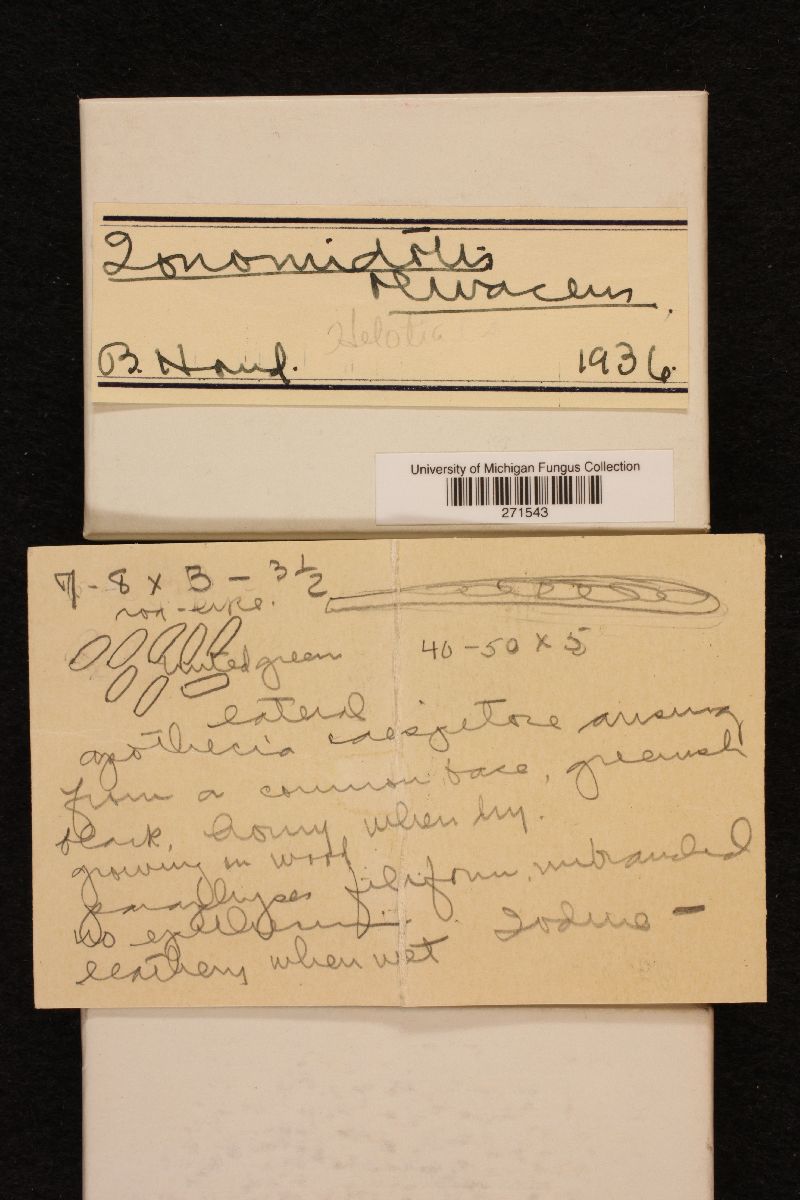 Ionomidotis
olivaceus.
Helotia
B. Hond. 1936.
University of Michigan Fungus Collection
271543
7-8 x 3 - 3 1/2
rod-like.
40-50 x 5
united green
lateral
apothecia caespitose arising
from a common base, greenish
black, horny when dry.
growing on wood
paraphyses filiform, unbranched
no epithecium.
Iodine -
leathery when wet